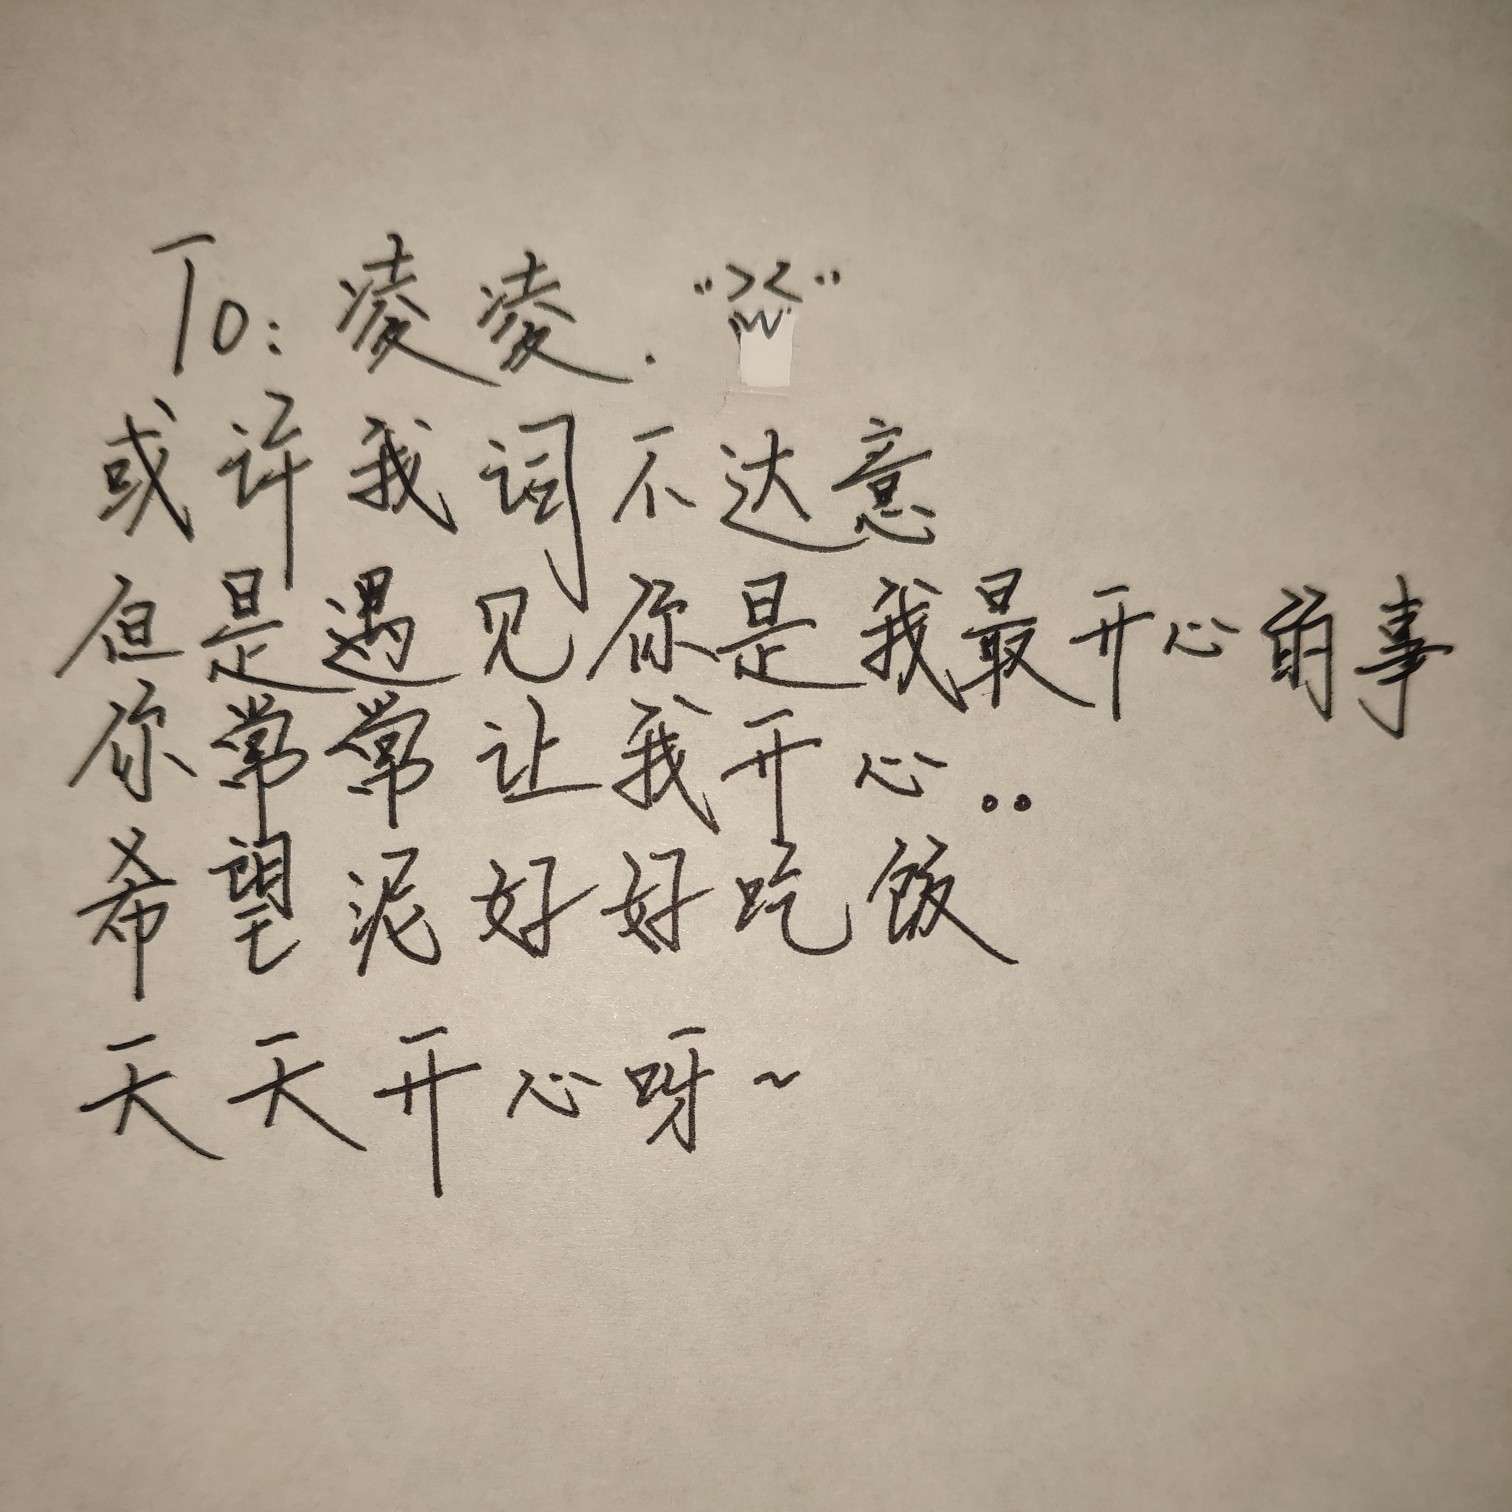 To: 凌凌.
或许我词不达意
但是遇见你是我最开心的事
你常常让我开心..
希望泥好好吃饭
天天开心呀~